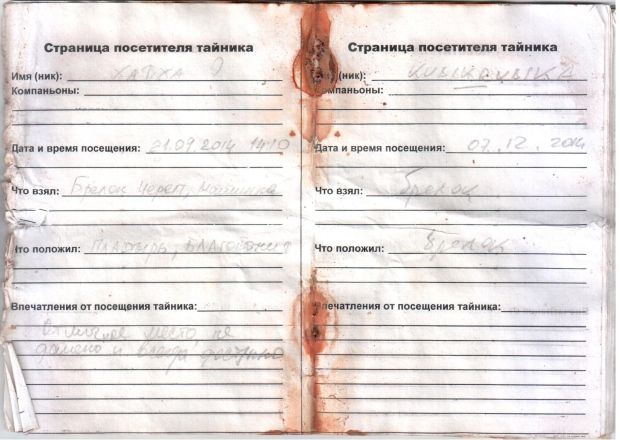 Страница посетителя тайника
Имя (ник): ХАТХА
Компаньоны:
Дата и время посещения: 21.09.2014 14:10
Что взял: Брелок череп, машинка
Что положил:
Впечатления от посещения тайника:
место, не
далеко и всегда доступно
Страница посетителя тайника
(ник):
мпаньоны:
Дата и время посещения: 07.12.2014
Что взял: Брелок
Что положил: Брелок
печатления от посещения тайника: